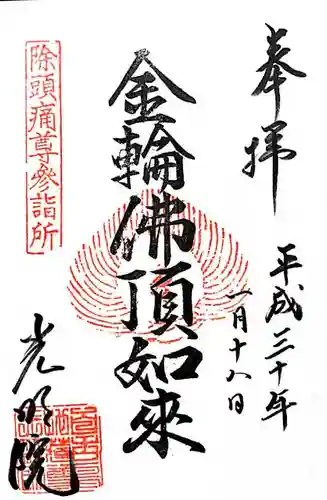 奉拝
平成三十年
一月十八日
金輪佛頂如來
除頭痛尊參詣所
光明院